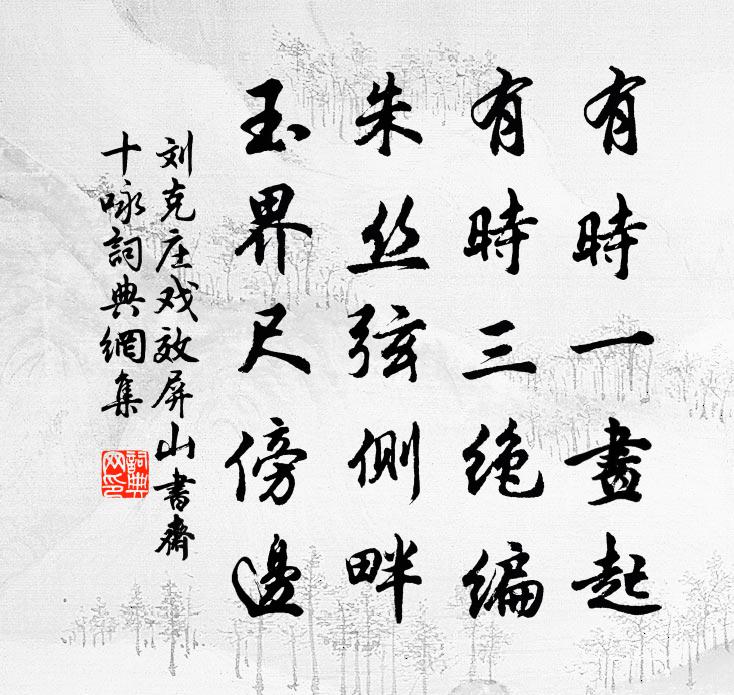 有時一畫起
有時三绝编
朱丝弦側畔
玉界尺傍邊
刘克庄戏效屏山書齋
十咏詞典網集
詞典网印